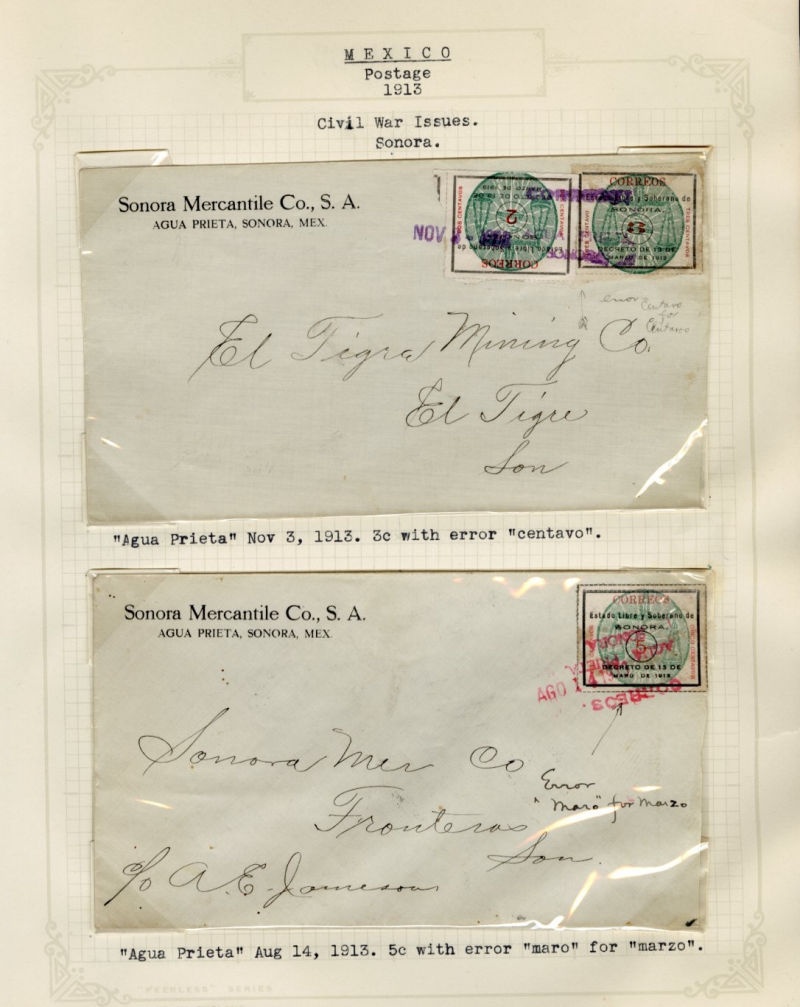 MEXICO
Postage
1913
Civil War Issues.
Sonora.
Sonora Mercantile Co., S. A.
AGUA PRIETA, SONORA, MEX.
CORREOS
Estado Libre y Soberano de
SONORA
2
DOS CENTAVOS
CENTAVOS
NOV
CORREOS
y Soberano de
SONORA
3
TRES CENTAVO
TRES CENTAVOS
DECRETO DE 13 DE
MARZO DE 1913
error Centavo
for
Centavos
El Tigra Mining Co.
El Tigre
Son
"Agua Prieta" Nov 3, 1913. 3c with error "centavo".
Sonora Mercantile Co., S. A.
AGUA PRIETA, SONORA, MEX.
CORREOS
Estado Libre y Soberano de
SONORA.
5
DECRETO DE 13 DE
MARO DE 1913
SONORA
AGO 14
CORREOS
Sonora Mer Co
Error
"Maro" for Marzo
Fronteras
Son.
c/o A. E. Jameson
"Agua Prieta" Aug 14, 1913. 5c with error "maro" for "marzo".
"PEERLESS" SERIES